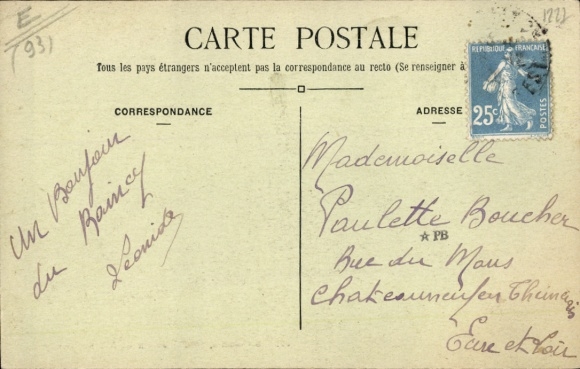 E
(93)
1223
CARTE POSTALE
Tous les pays étrangers n'acceptent pas la correspondance au recto (Se renseigner à
REPUBLIQUE FRANÇAISE
25c
POSTES
CORRESPONDANCE
ADRESSE
Un Bonjour
du Raincy
Léonide
Mademoiselle
Paulette Boucher
★ PB
Rue du Mans
Chateauneuf en Thimerais
Eure et Loir